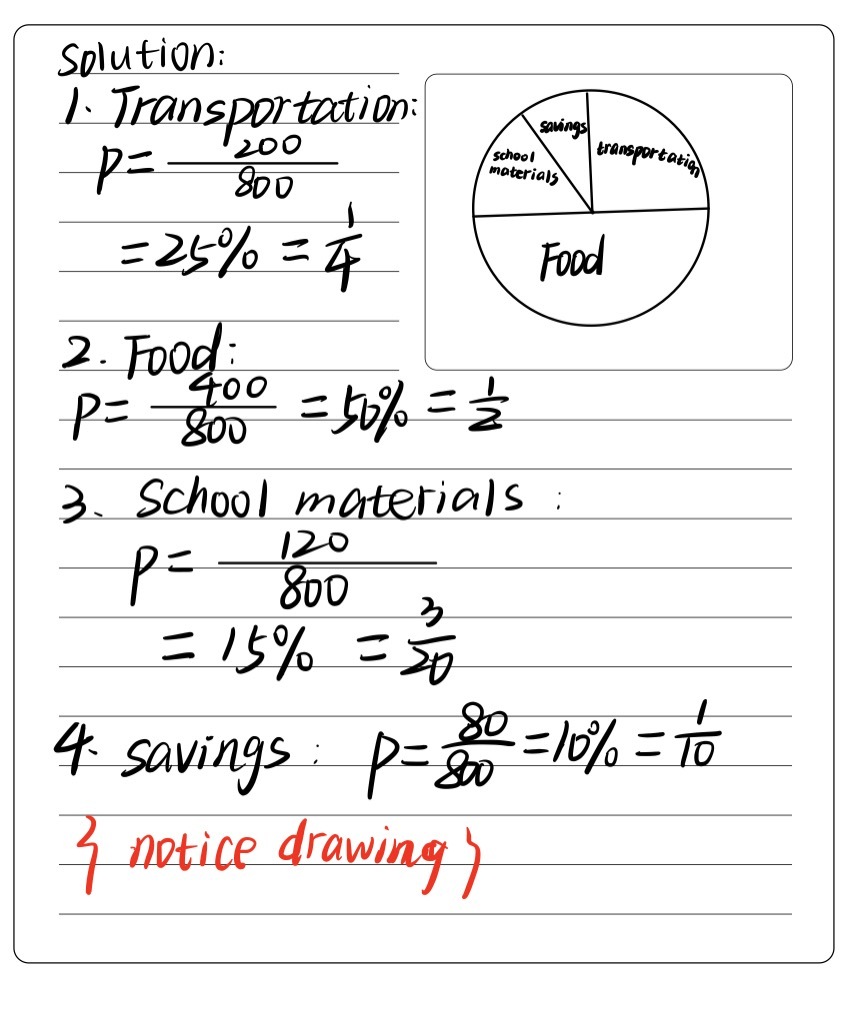 Solution:
1. Transportation:
P = 200/800
= 25% = 1/4
savings
transportation
school
materials
Food
2. Food:
P = 400/800 = 50% = 1/2
3. School materials :
P = 120/800
= 15% = 3/20
4. savings : P = 80/800 = 10% = 1/10
{ notice drawing }